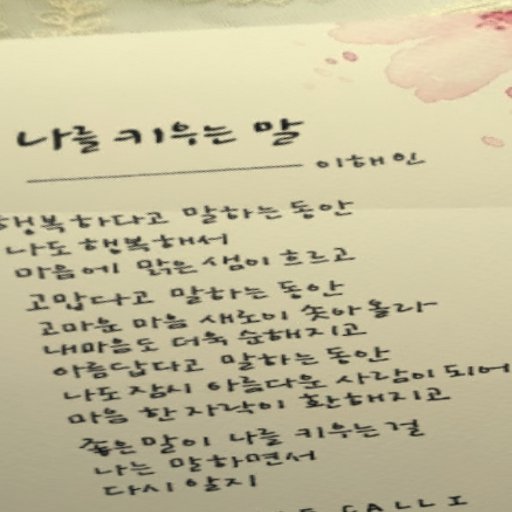 나를 키우는 말
이해인
행복하다고 말하는 동안
나도 행복해서
마음에 맑은 샘이 흐르고
고맙다고 말하는 동안
고마운 마음 새로이 솟아올라
내마음도 더욱 순해지고
아름답다고 말하는 동안
나도 잠시 아름다운 사람이 되어
마음 한 자락이 환해지고
좋은 말이 나를 키우는 걸
나는 말하면서
다시 알지
CALLI